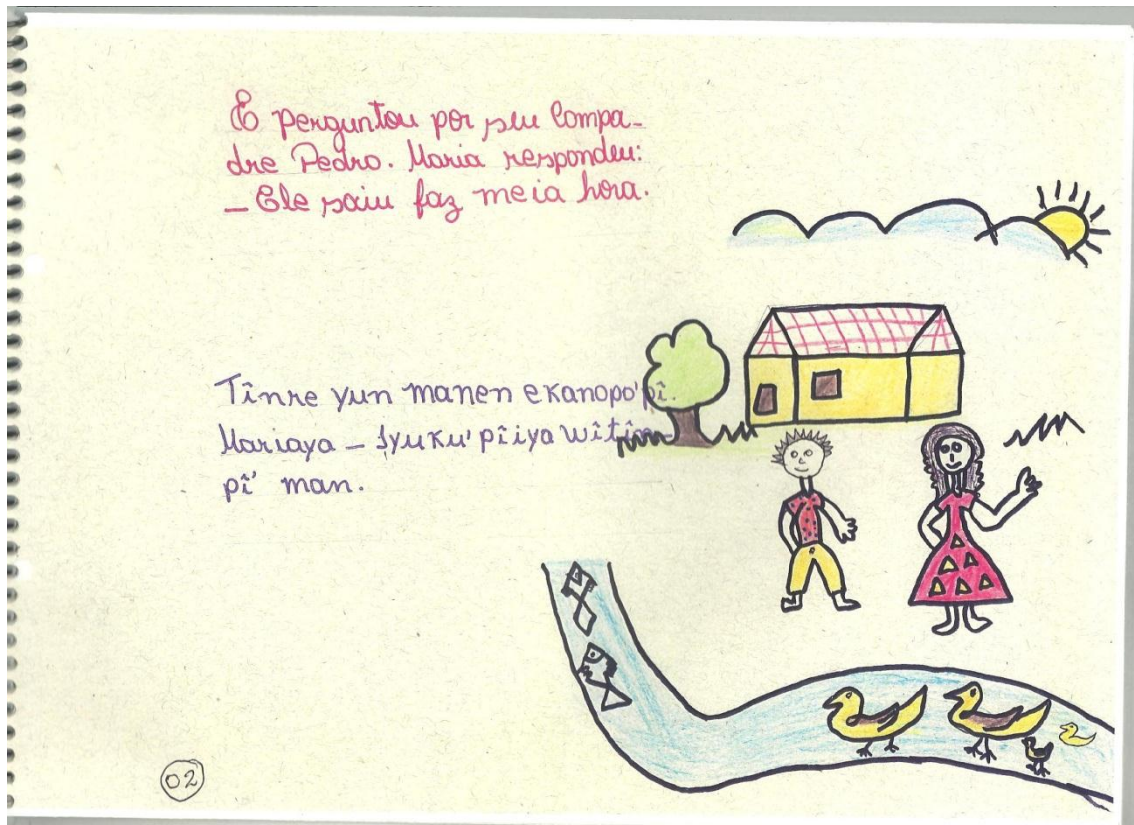 E perguntou por seu Compa-
dre Pedro. Maria respondeu:
- Ele saiu faz meia hora.
Tînre yun manen ekanopo'pî.
Mariaya - Iyuku'pîiya wîtîn
pî' man.
02